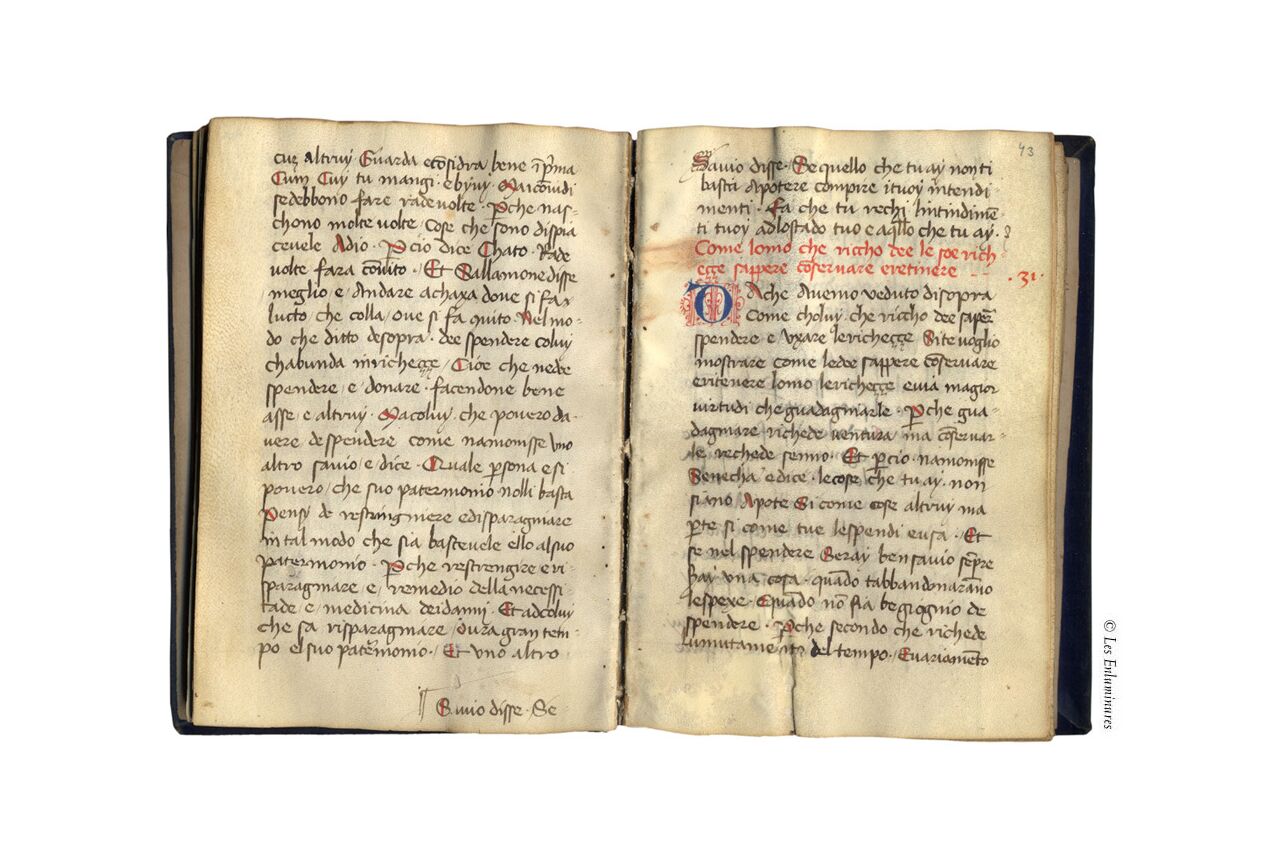 cuȝ altruy Guarda ecōsidra bene īp̄ma
Cum Cuy tu mangi · e byvy · Naicōuidi
sedebbono fare rade volte · P̄che nas-
chono molte volte / cose che sono dispia
cevele Adio · P̄cio dice Chato · Rade
volte fara cōuito · Et Sallamone disse
meglio / e / Andare achaxa dove si fa x
lucto / che colla / Ove si fa quito · Nel mo-
do che ditto desopra · dee spendere coluy
chabunda inrichegçe / Cioe che nedee
spendere / e / donare · facendone bene
asse / e altruy · Nacoluy · che povero da-
vere despendere come namonisse uno
altro savio / e / dice · Quale p̄sona e si
povero / che suo patermonio nolli basta
Pensy de restringniere edisparagmare
in tal modo che sia bastevele ello alsuo
patermonio · P̄che restrengire e ri-
sparagmare e / remedio della necessi
tade / e / medicina deidanni · Et adcoluy
che sa risparagmare / dura gran tem-
po el suo pater̄monio · / Et uno altro
Savio disse · Se
43
Savio disse · Se quello che tu ay non ti
basta Apotere compire ituoy intendi-
menti · Fa che tu rechi lintindimē-
ti tuoy adlostado tuo e aq̄llo che tu ay ·
Come lomo che riccho dee le soe rich
eçe sappere cōservare eretinere
· 31 ·
DAche Avemo veduto disopra
Come choluy che riccho dee sap̄er
spendere e Uxare lerichegçe Si te voglio
mostrare come ledee sappere cōservare
eritenere lomo lerichegçe e via magior
virtudi che guadagmarle · P̄che gua-
dagmare richede ventura ma cōservar-
le rechede senno · Et p̄cio namonisse
Senecha edice · le cose che tu ay · non
siano Apote Si come cose altruy ma
p̄te si come tue lespendi eusa · Et
se nel spendere Seray ben savio semp̄re
Say una cosa · quādo tabbandonarāno
lespexe · Equādo nō fia begiognio de
spendere · P̄che secondo che richede
lumutamento del tempo · / Evariamēto
© Les Enluminures